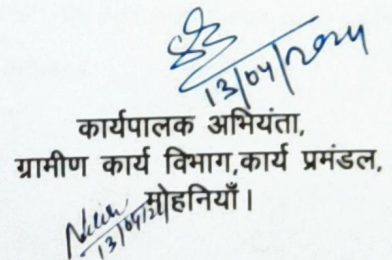 13/04/2024
कार्यपालक अभियंता,
ग्रामीण कार्य विभाग,कार्य प्रमंडल,
मोहनियाँ।
13/04/24